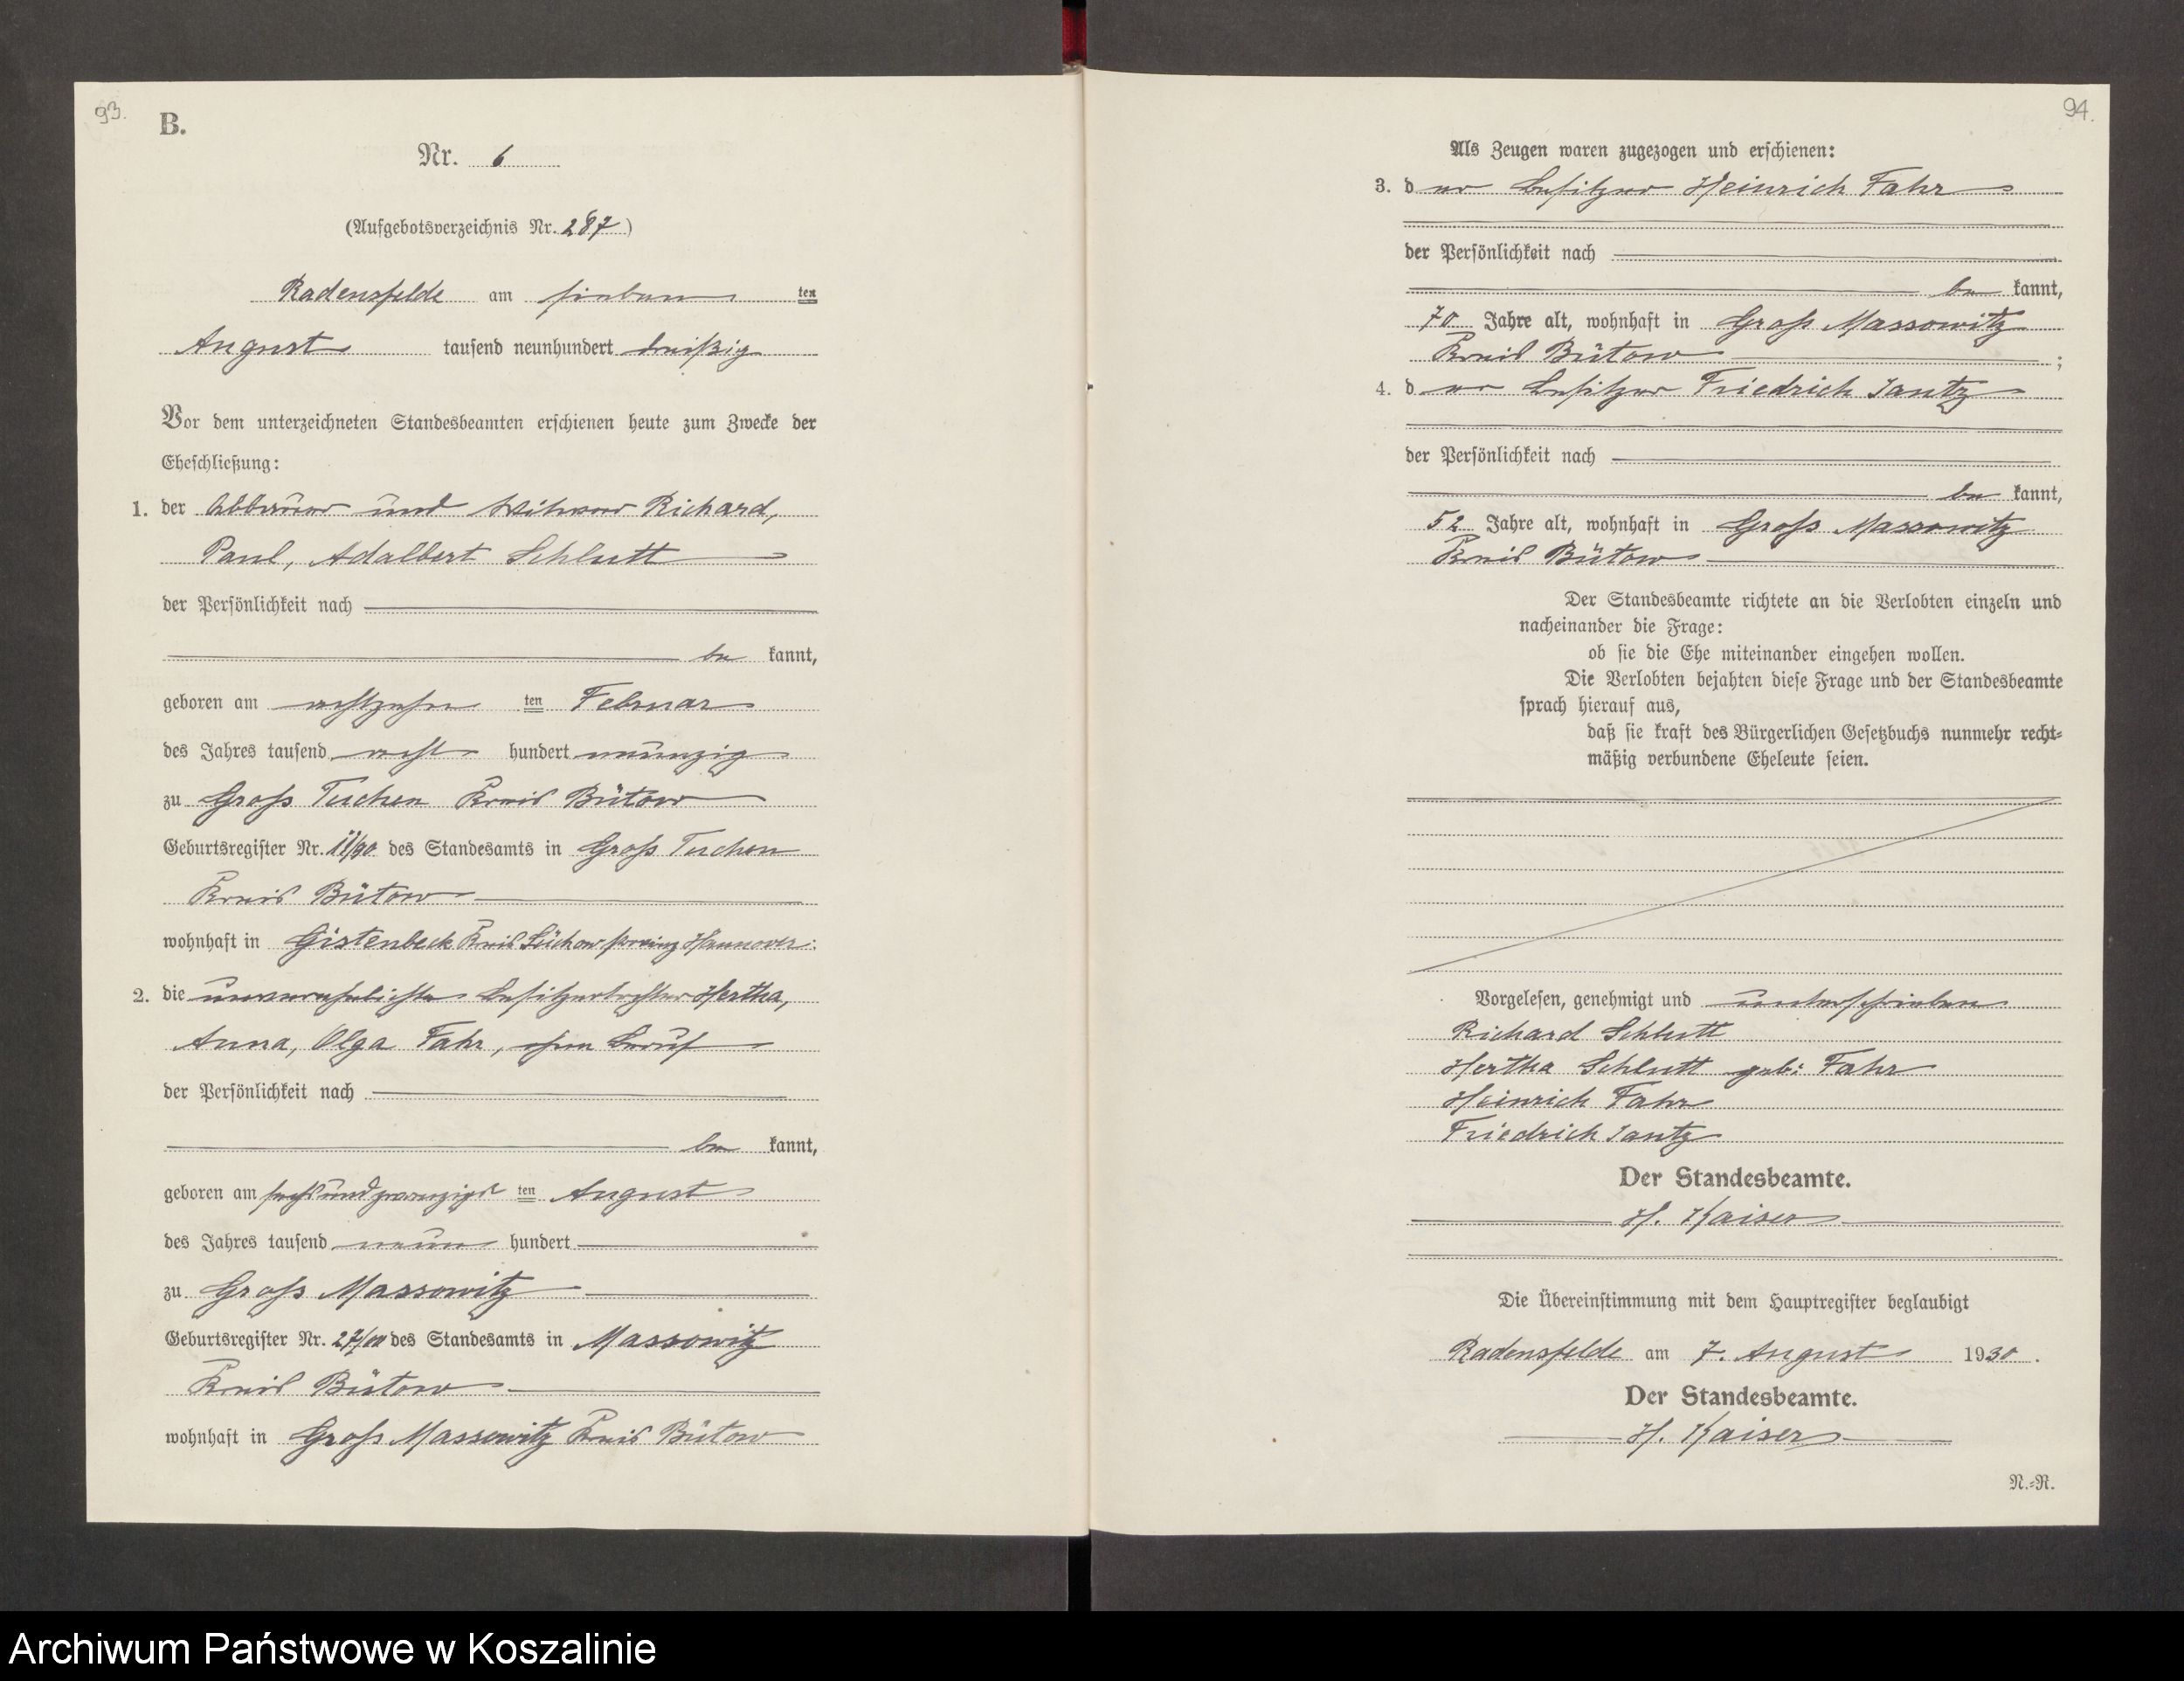 93.
B.
Nr. 6
(Aufgebotsverzeichnis Nr. 287)
Radensfelde am sieben ten
August tausend neunhundert dreißig
Vor dem unterzeichneten Standesbeamten erschienen heute zum Zwecke der
Eheschließung:
1. der Abbauer und Witwer Richard,
Paul, Adalbert Schlutt
der Persönlichkeit nach
be kannt,
geboren am achtzehn ten Februar
des Jahres tausend acht hundert neunzig
zu Groß Tuchen Kreis Bütow
Geburtsregister Nr. 11/90 des Standesamts in Groß Tuchen
Kreis Bütow
wohnhaft in Gistenbeck Kreis Lüchow Provinz Hannover;
2. die unverehelichte Besitzertochter Hertha,
Anna, Olga Fahr, ohne Beruf
der Persönlichkeit nach
be kannt,
geboren am sechsundzwanzigs ten August
des Jahres tausend neun hundert
zu Groß Massowitz
Geburtsregister Nr. 27/00 des Standesamts in Massowitz
Kreis Bütow
wohnhaft in Groß Massowitz Kreis Bütow
94.
Als Zeugen waren zugezogen und erschienen:
3. d er Besitzer Heinrich Fahr
der Persönlichkeit nach
be kannt,
70 Jahre alt, wohnhaft in Groß Massowitz
Kreis Bütow ;
4. d er Besitzer Friedrich Jantz
der Persönlichkeit nach
be kannt,
52 Jahre alt, wohnhaft in Groß Massowitz
Kreis Bütow
Der Standesbeamte richtete an die Verlobten einzeln und
nacheinander die Frage:
ob sie die Ehe miteinander eingehen wollen.
Die Verlobten bejahten diese Frage und der Standesbeamte
sprach hierauf aus,
daß sie kraft des Bürgerlichen Gesetzbuchs nunmehr recht-
mäßig verbundene Eheleute seien.
Vorgelesen, genehmigt und unterschrieben
Richard Schlutt
Hertha Schlutt geb: Fahr
Heinrich Fahr
Friedrich Jantz
Der Standesbeamte.
H. Kaiser
Die Übereinstimmung mit dem Hauptregister beglaubigt
Radensfelde am 7. August 1930.
Der Standesbeamte.
H. Kaiser
N.-R.
Archiwum Państwowe w Koszalinie